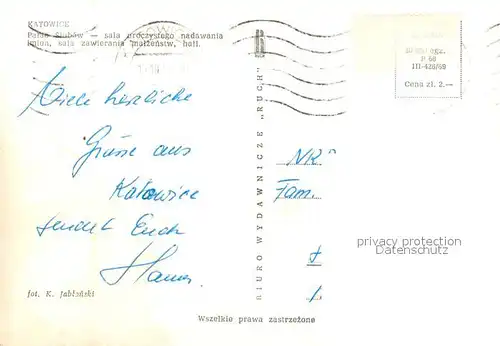 KATOWICE
Pałac Ślubów — sala uroczystego nadawania
imion, sala zawierania małżeństw, hall.
P 60
III-428/69
Cena zł. 2.—
Viele herzliche
Grüsse aus
Katowice
sendet Euch
Hans
BIURO WYDAWNICZE „RUCH"
NR"
Fam.
privacy protection
Datenschutz
fot. K. Jabłoński
Wszelkie prawa zastrzeżone